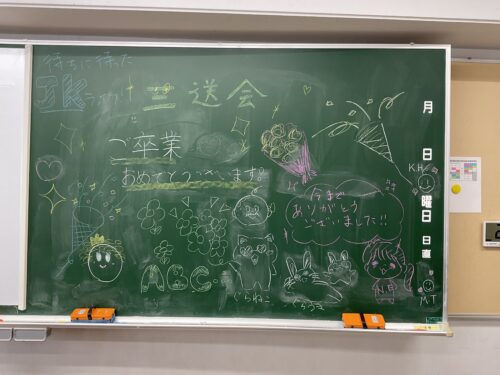 待ちに待った
JKライフ!!
三送会
ご卒業
おめでとうございます!
今まで
ありがとう
ございました!!
ABC
ぐらねこ
月
日
曜日
日直
K.H
M.T